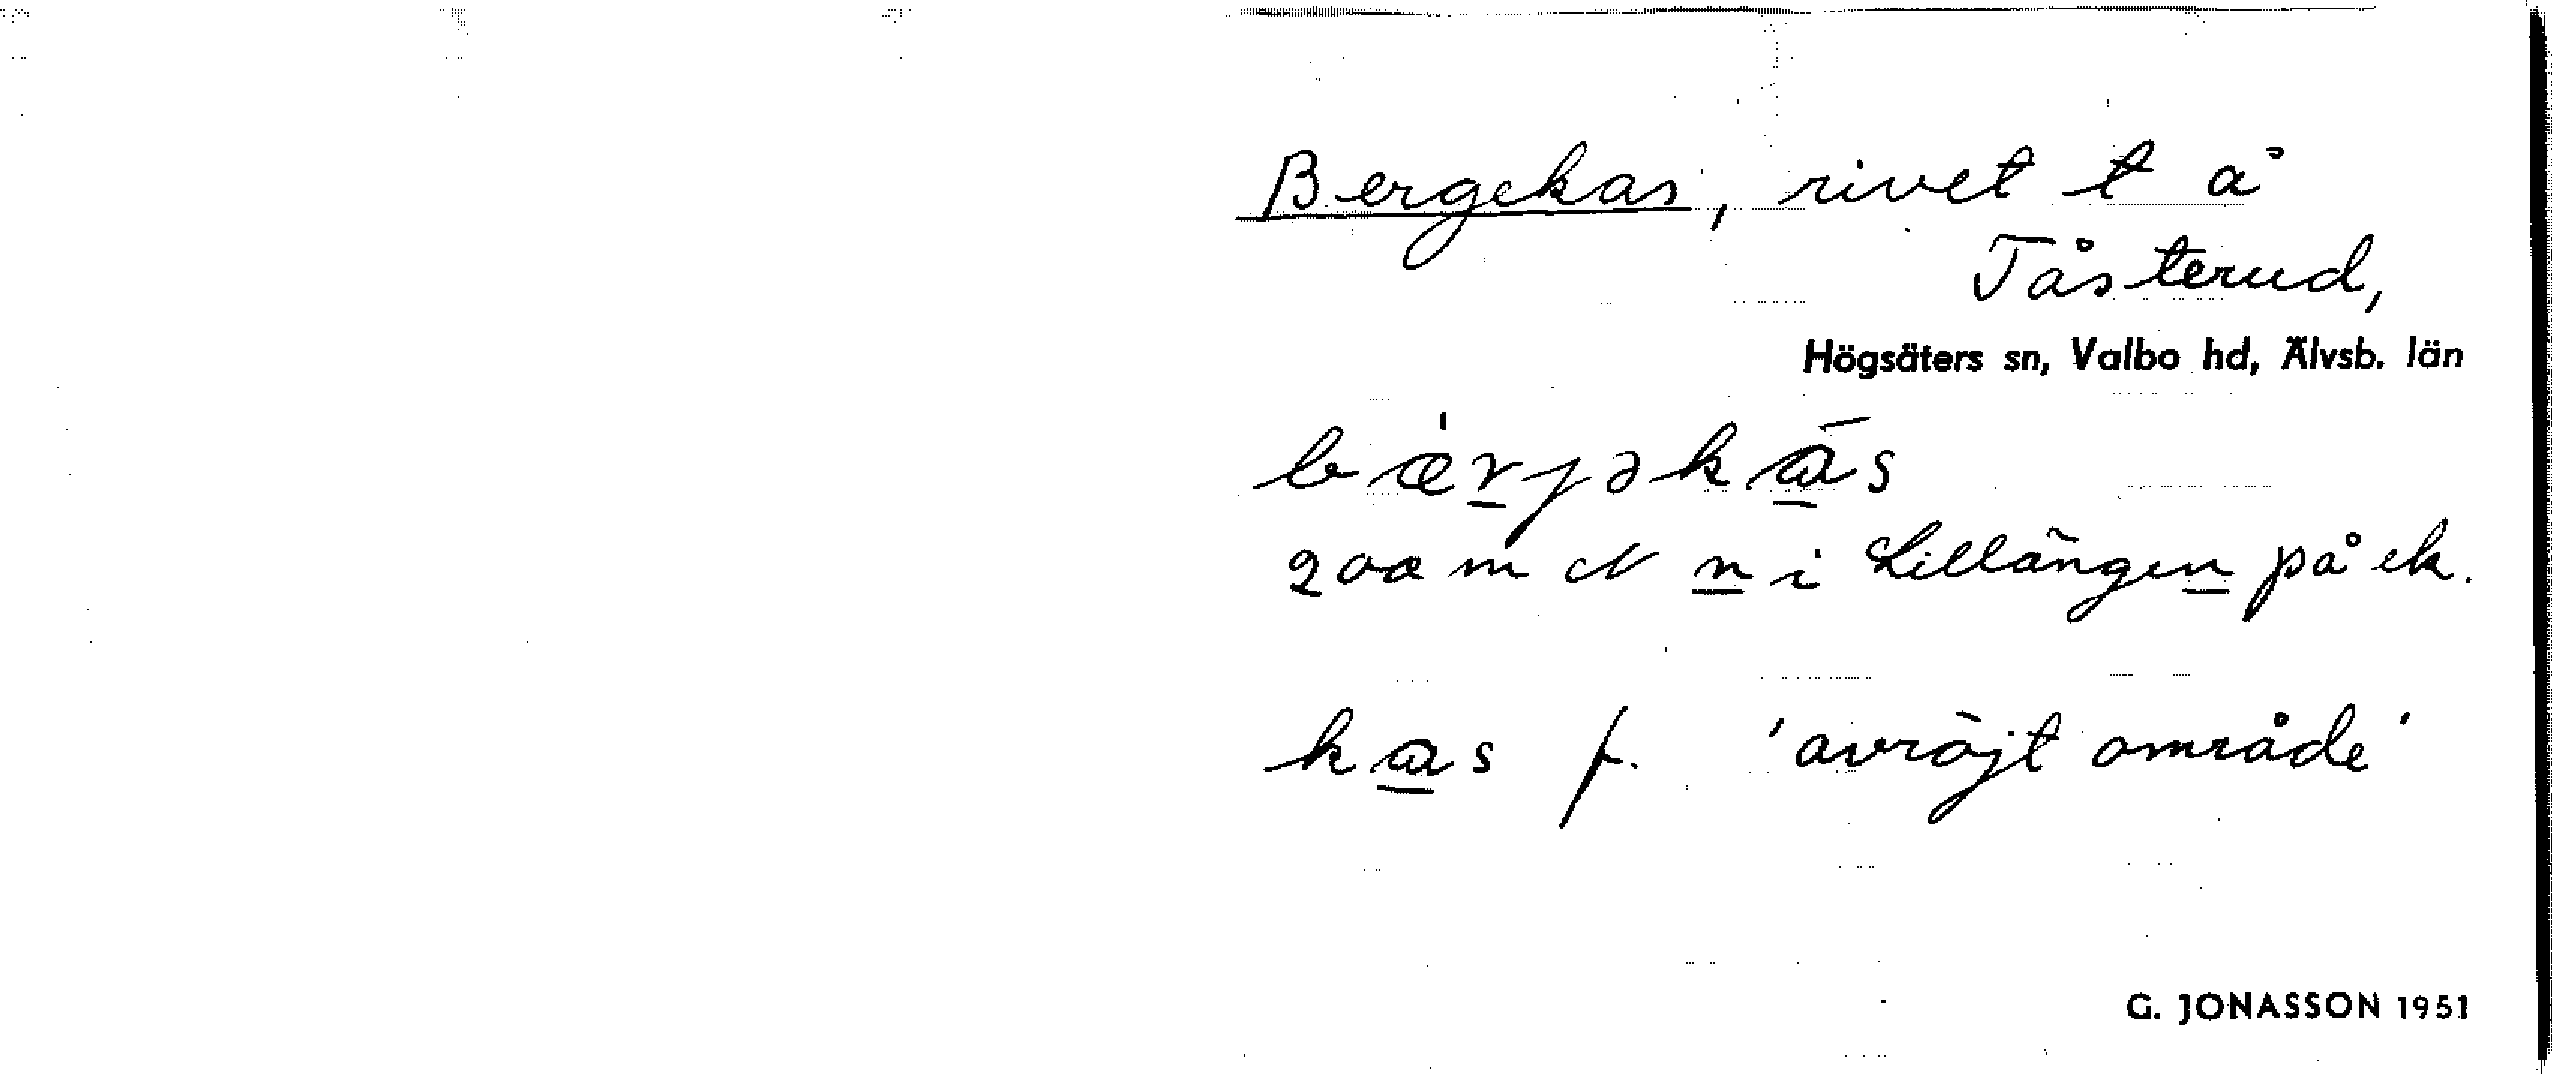 Bergekas, rivet t å
Tåsterud,
Högsäters sn, Valbo hd, Älvsb. län
bærjəkas
200 m N n i Lillängen på ek.
kas f. 'avröjt område'
G. JONASSON 1951